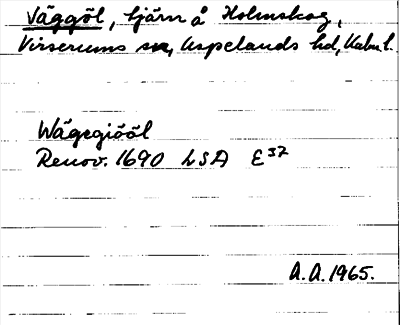 Väggöl, tjärn å Holmskog,
Virserums sn, Aspelands hd, Kalm. l.
Wägegiööl
Renov. 1690 LSA E³⁷
A.A. 1965.